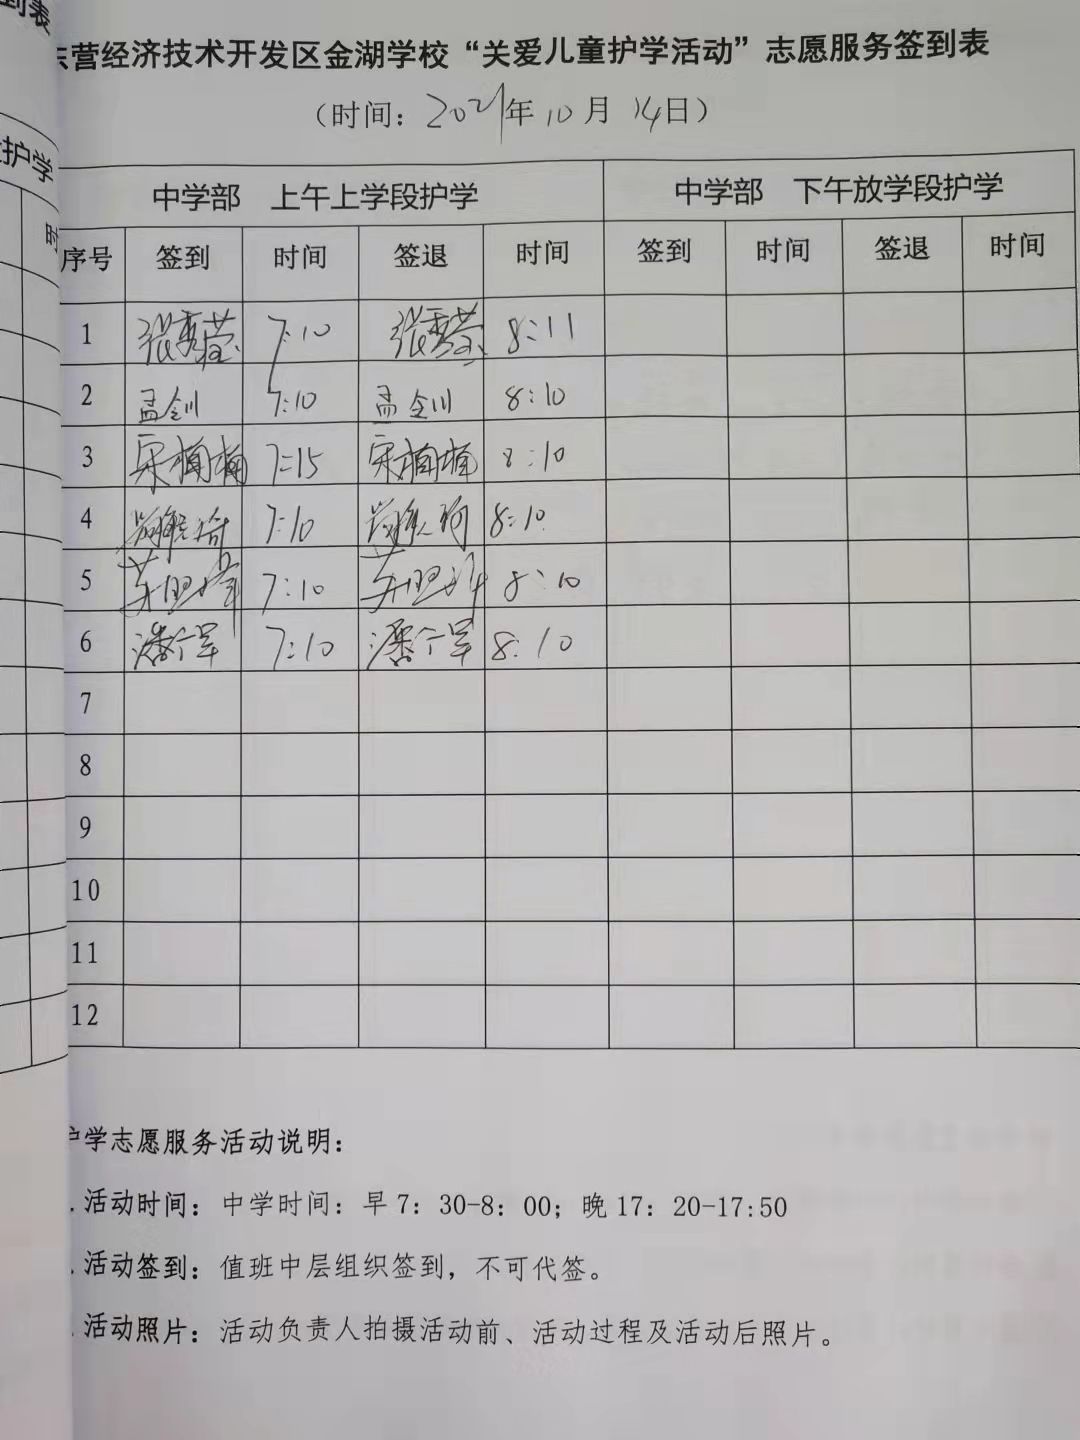 到表
东营经济技术开发区金湖学校“关爱儿童护学活动”志愿服务签到表
（时间：2021年10月14日）
护学
中学部 上午上学段护学 中学部 下午放学段护学
时
序号 签到 时间 签退 时间 签到 时间 签退 时间
1 张秀莹 7:10 张秀莹 8:11
2 孟剑 7:10 孟剑 8:10
3 宋楠楠 7:15 宋楠楠 8:10
4 7:10 8:10
5 7:10 8:10
6 潘宁军 7:10 潘宁军 8:10
7
8
9
10
11
12
护学志愿服务活动说明：
. 活动时间：中学时间：早7：30-8：00；晚17：20-17:50
. 活动签到：值班中层组织签到，不可代签。
. 活动照片：活动负责人拍摄活动前、活动过程及活动后照片。